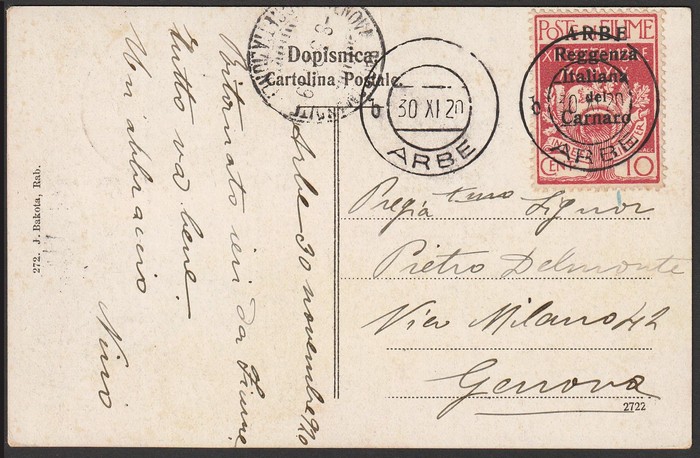 Dopisnica
Cartolina Postale
GENOVA
30 XI 20
b
ARBE
POSTE FIUME
ARBE
Reggenza
Italiana
del
Carnaro
b
ARBE
CENT 10
Arbe 30 novembre 920
Ritornato ieri da Fiume,
tutto va bene.
Un abbraccio
Nino
Pregia tmo Signor
Pietro Delmonte
Via Milano 42
Genova
272. J. Bakota, Rab.
2722